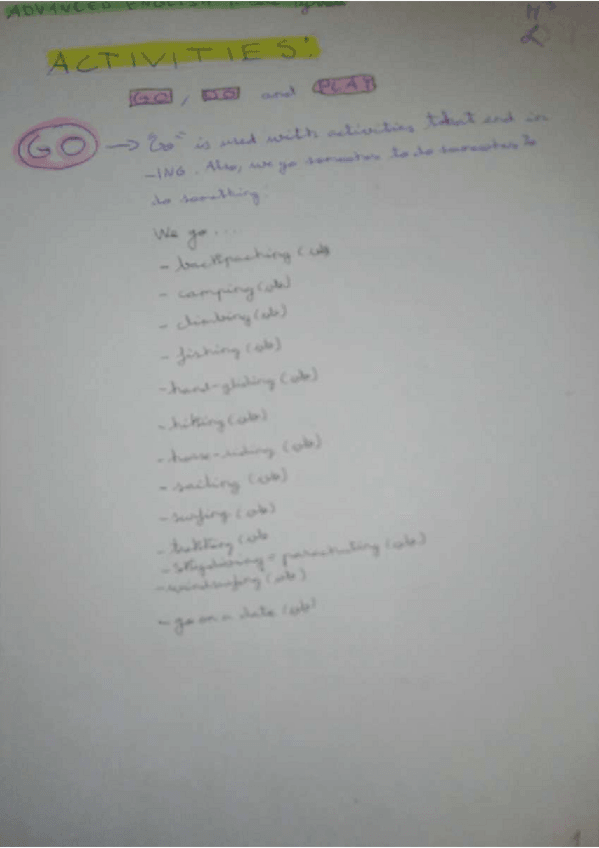 ADVANCED ENGLISH
ACTIVITIES:
GO, DO and PLAY
GO → "Go" is used with activities that end in
-ING. Also, we go to do to
do something.
We go ...
- backpacking (vb)
- camping (vb)
- climbing (vb)
- fishing (vb)
- hand-gliding (vb)
- hiking (vb)
- horse-riding (vb)
- sailing (vb)
- surfing (vb)
- trekking (vb
- skydiving = parachuting (vb)
- windsurfing (vb)
- go on a date (vb)
1